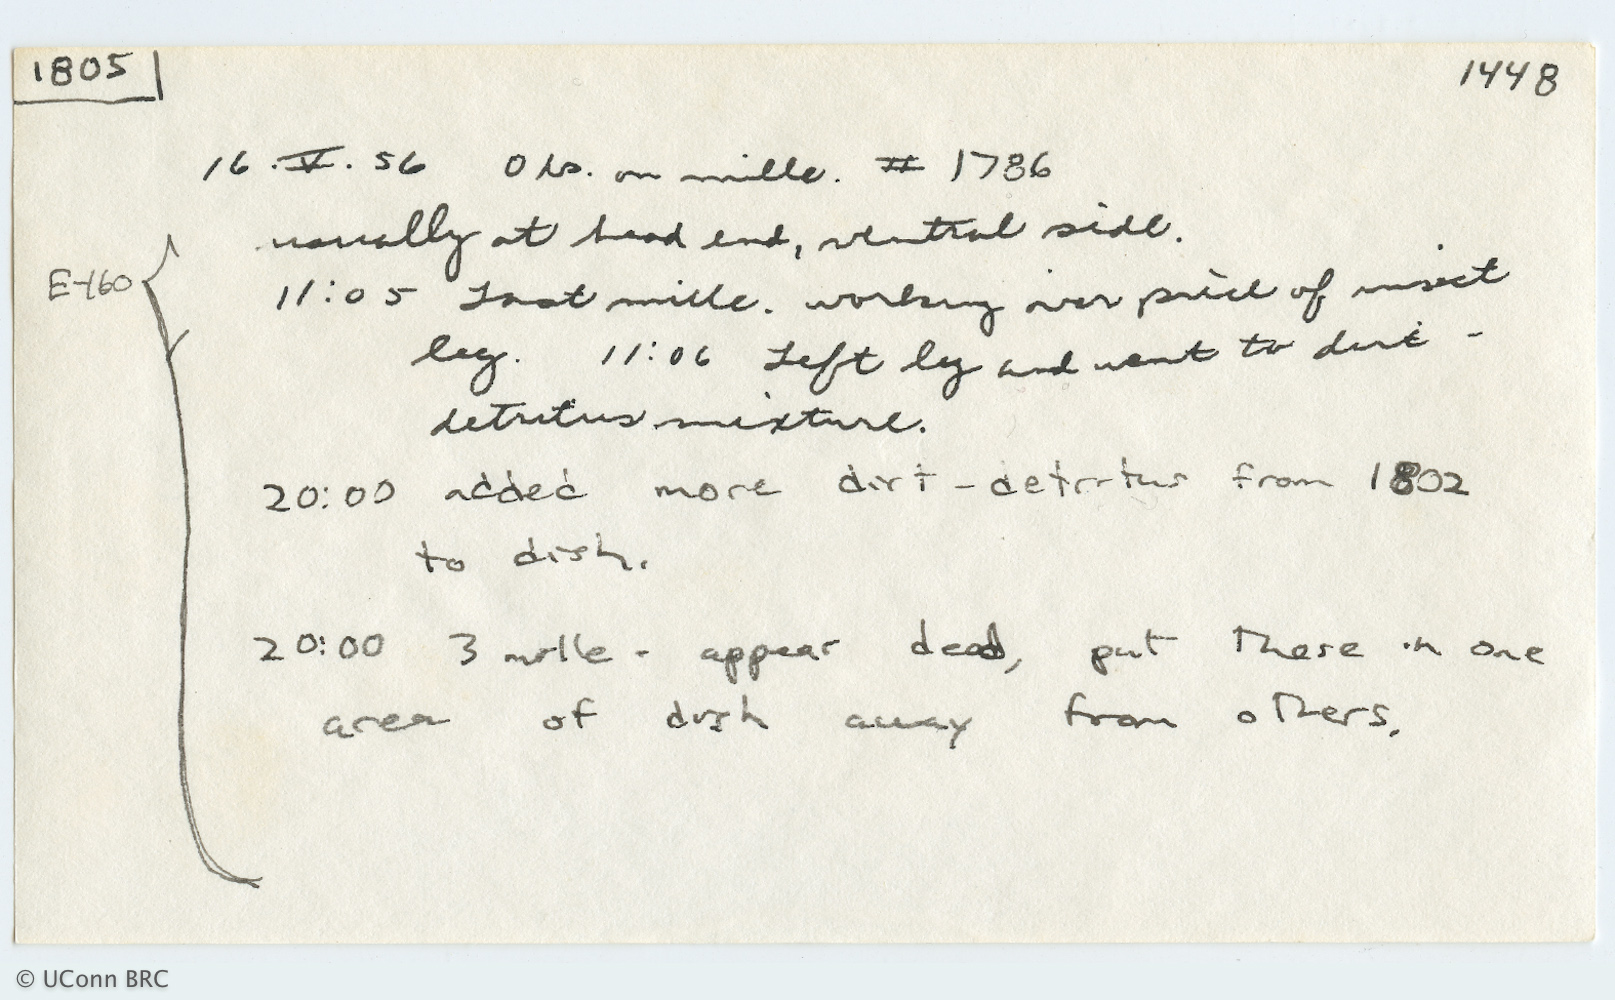 1805
1448
16.V.56 Obs. on mille. # 1786
usually at head end, ventral side.
E-160
11:05 Last mille. working over piece of insect
leg. 11:06 Left leg and went to dirt-
detritus mixture.
20:00 added more dirt-detritus from 1802
to dish.
20:00 3 mille. appear dead, put these in one
area of dish away from others.
© UConn BRC